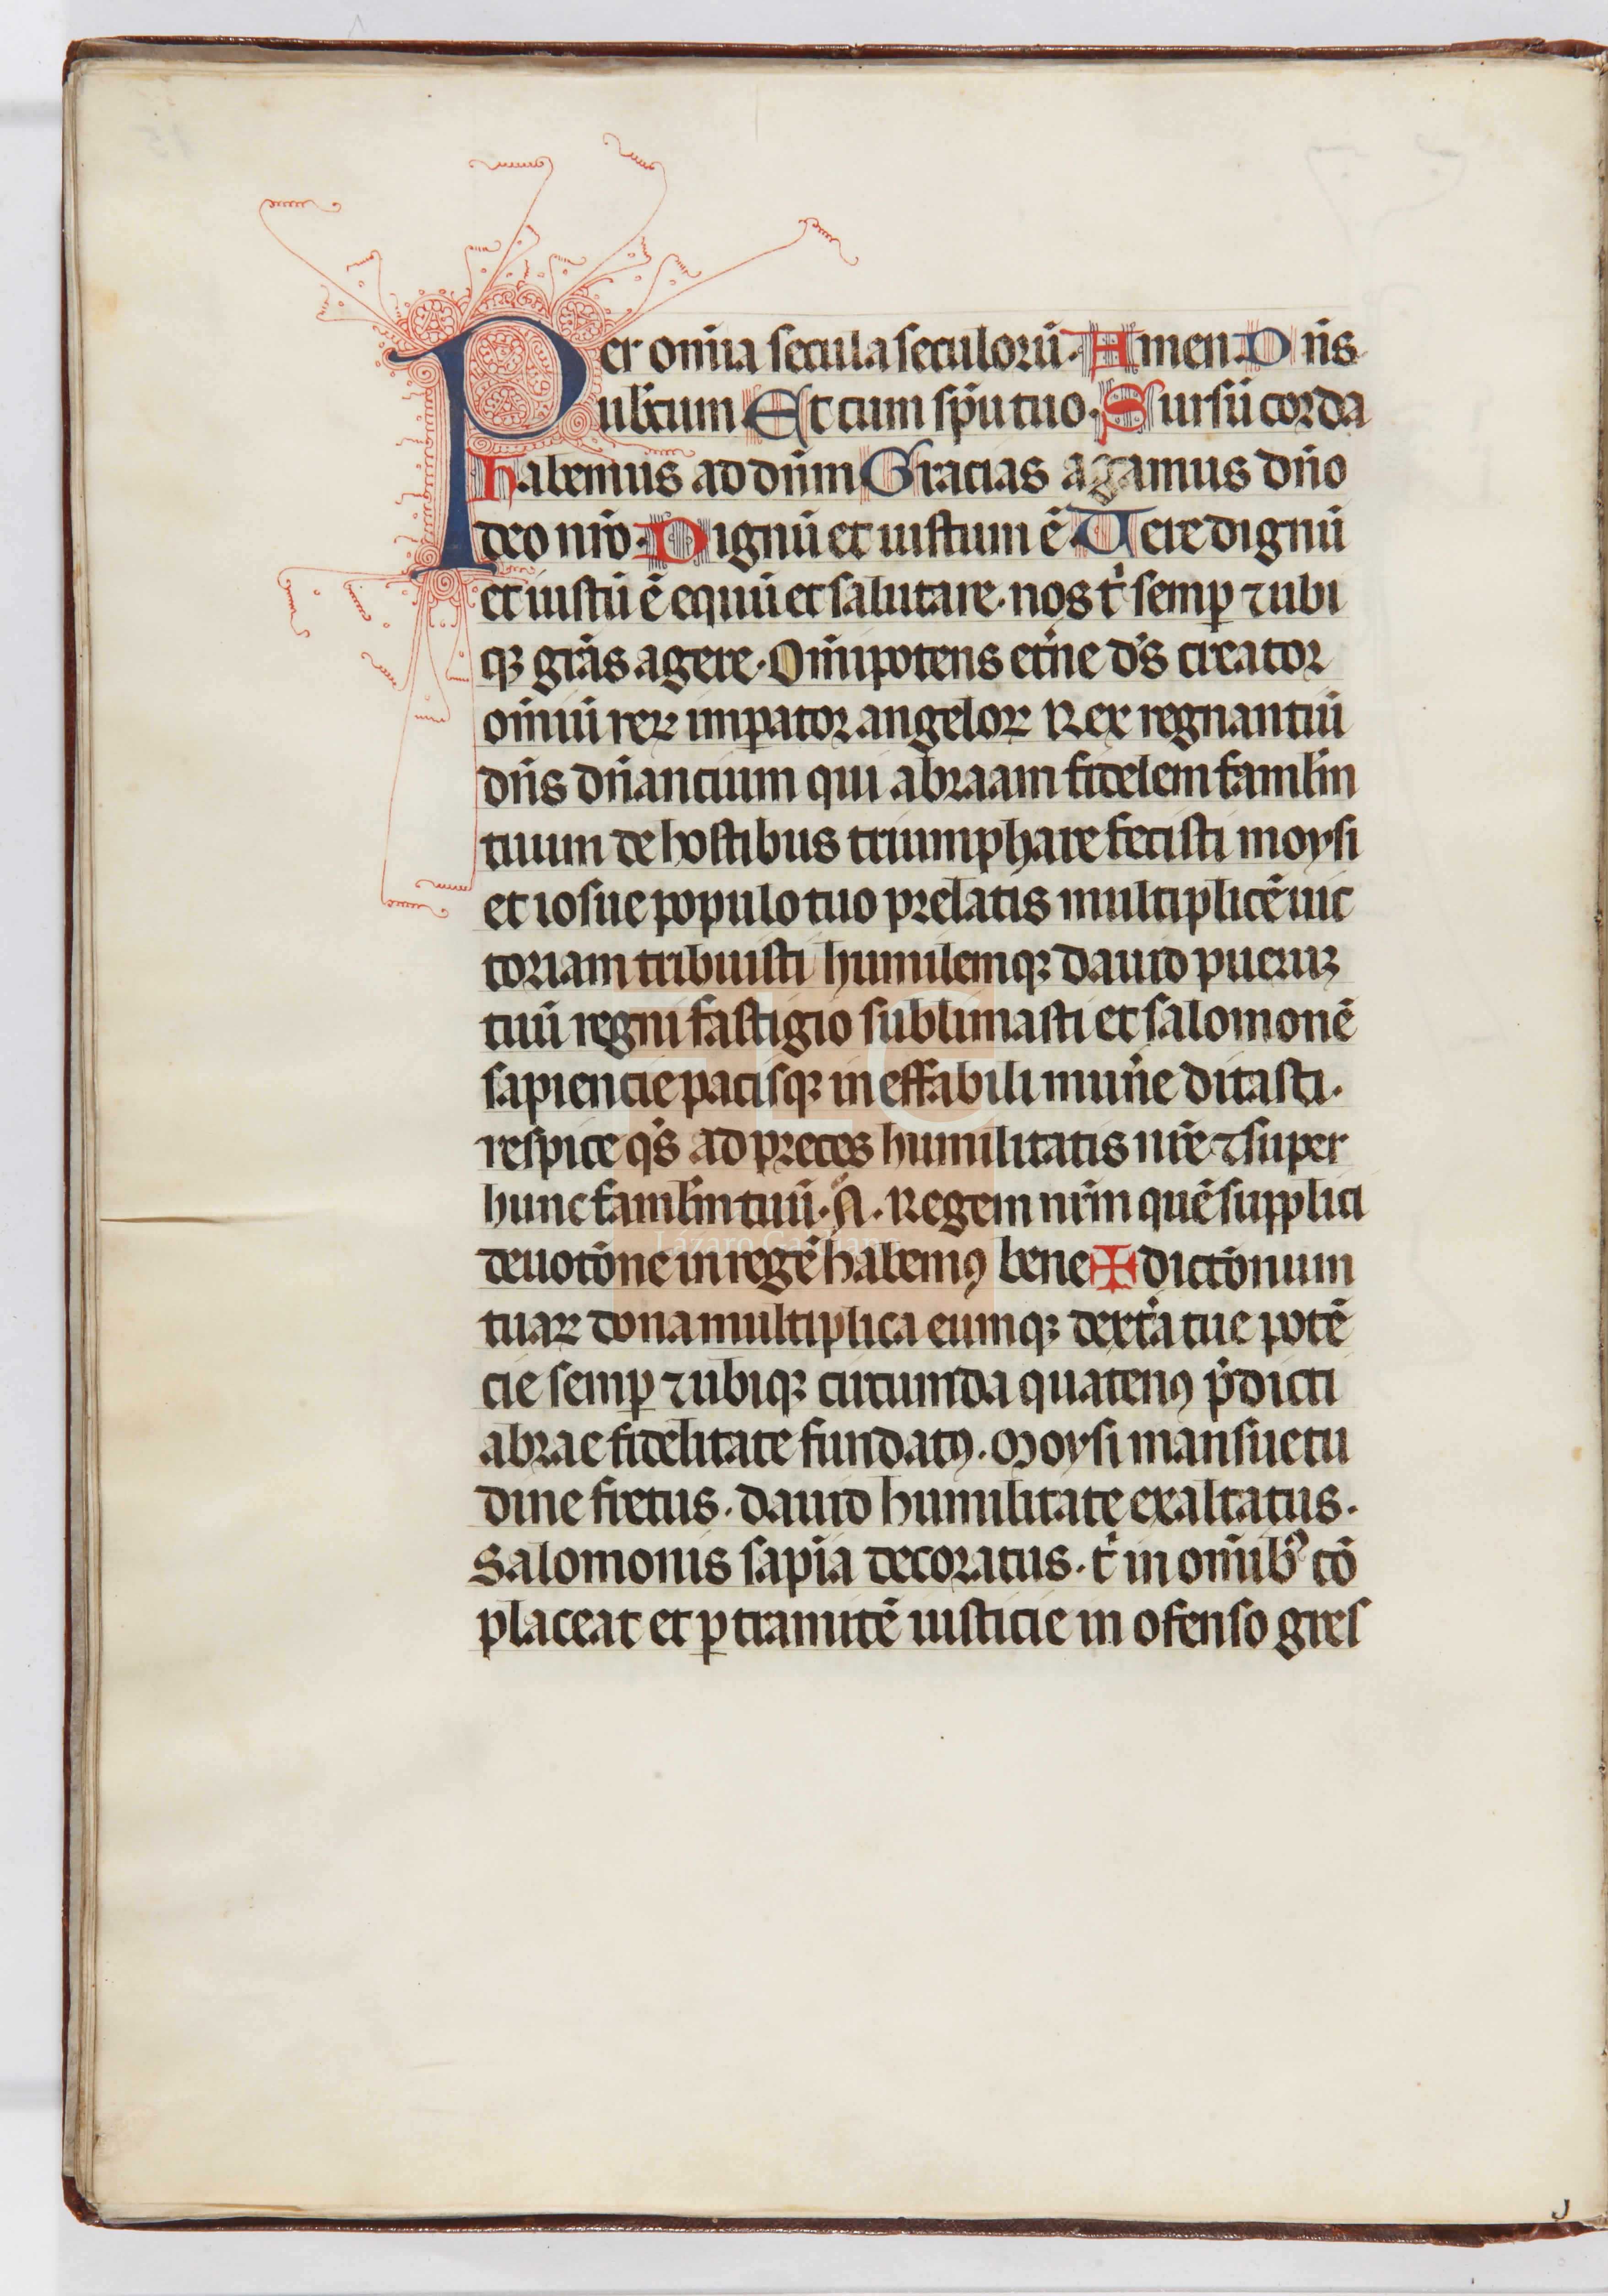 Per om̅ia secula seculoru̅. Amen. Dn̅s
uob̅cum Et cum sp̅u tuo. Sursu̅ corda
Habemus ad dn̅m Gracias agamus dn̅o
deo nr̅o. Dignu̅ et iustum e̅ Uere dignu̅
et iustu̅ e̅ equu̅ et salutare. nos tͥ semꝑ ⁊ ubi
qꝫ gr̅as agere. Om̅ipotens et̅ne d̅s creator
om̅iu̅ reꝝ imꝑator angeloꝝ Rex regnantiu̅
dn̅s dn̅ancium qui abraam fidelem faml̅m
tuum de hostibus triumphare fecisti moysi
et iosue populo tuo prelatis multiplice̅ uic
toriam tribuisti humilemqꝫ dauid pueruꝫ
tuu̅ regni fastigio sublimasti et salomone̅
sapiencie pacisqꝫ ineffabili mun̅e ditasti.
respice q̅s ad preces humilitatis nr̅e ⁊ super
hunc faml̅m tuu̅. N̅. Regem nr̅m que̅ supplici
deuoto̅ne in rege̅ habemꝯ bene✠dicto̅num
tuaꝝ dona multiplica eumqꝫ dext̅a tue pote̅
cie semꝑ ⁊ ubiqꝫ circumda quatenꝯ p̅dicti
abrae fidelitate fundatꝯ. Moysi mansuetu
dine fretus. dauid humilitate exaltatus.
Salomonis sapi̅a decoratus. tͥ in om̅ibꝰ co̅
placeat et ꝑ tramite̅ iusticie in ofenso gres
Lázaro Galdiano